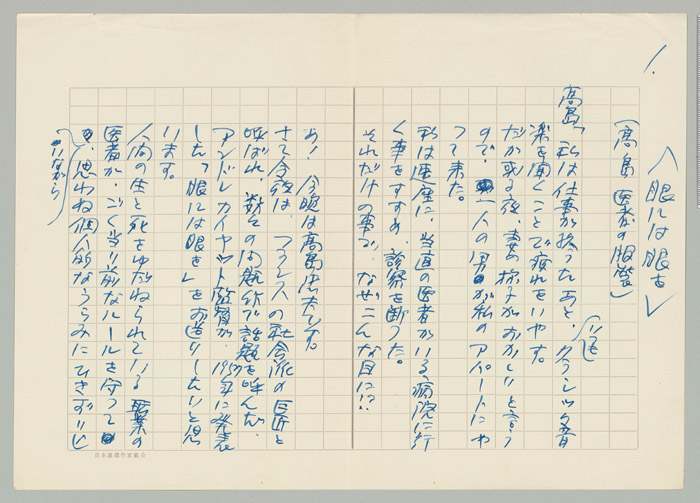 1.
「眼には眼を」
（高島 医者の服装）
高島「私は仕事が終ったあと、いつもクラシック音
楽を聞くことで疲れをいやす。
だが或る夜、妻の様子がおかしいと言う
ので、一人の男が私のアパートにや
って来た。
私は即座に、当直の医者がいる病院に行
く事をすすめ、診察を断った。
それだけの事で、なぜこんな目に!?
あ！ 今晩は高島忠夫です。
さて今夜は、フランスの社会派の巨匠と
呼ばれ、数々の問題作で話題を呼んだ、
アンドレ カイヤット監督が、1957年に発表
した「眼には眼を」をお送りしたいと思
います。
人間の生と死をゆだねられている医業の
医者が、ごく当り前なルールを守って
いながら
思わぬ個人的なうらみにひきずりこ
日本放送作家組合